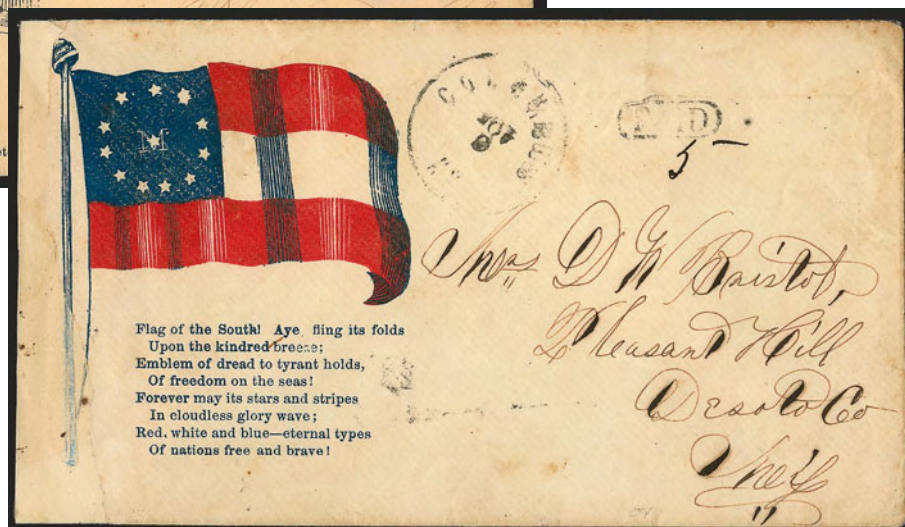 M
COLUMBUS
PAID
5
Flag of the South! Aye, fling its folds
Upon the kindred breeze;
Emblem of dread to tyrant holds,
Of freedom on the seas!
Forever may its stars and stripes
In cloudless glory wave;
Red, white and blue—eternal types
Of nations free and brave!
Mrs D W Bristol,
Pleasant Hill
Desoto Co
Mi